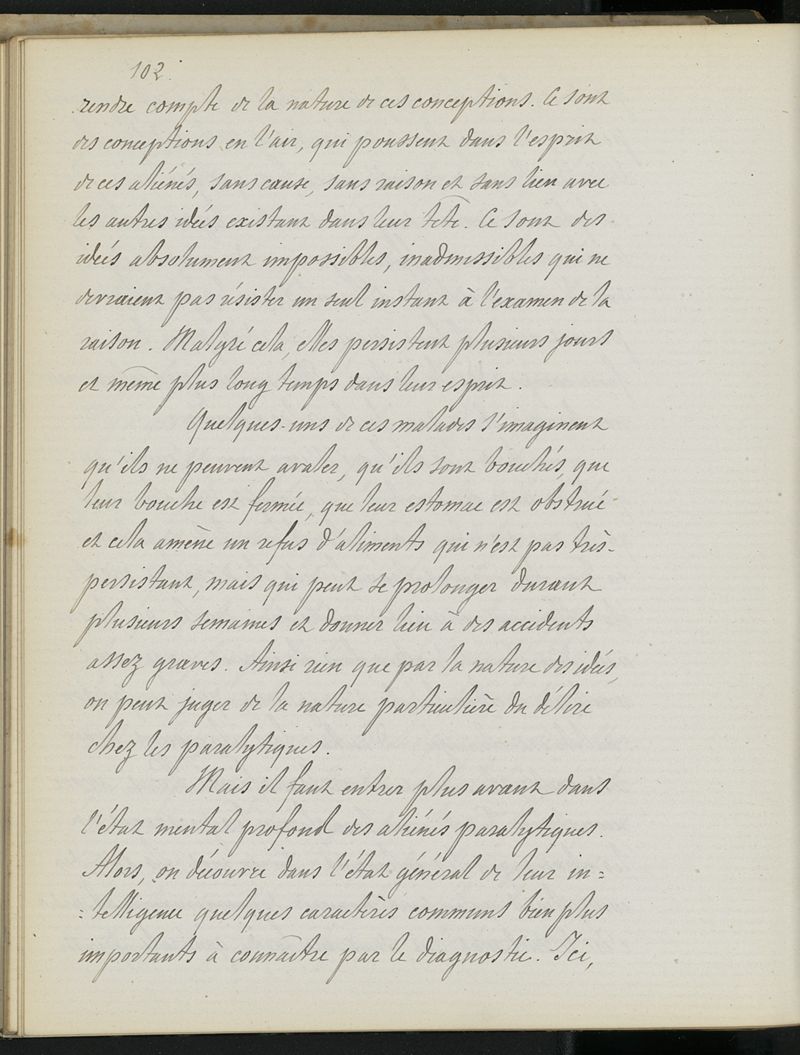 102.
rendre compte de la nature de ces conceptions. Ce sont
des conceptions en l'air, qui poussent dans l'esprit
de ces aliénés, sans cause, sans raison et sans lien avec
les autres idées existant dans leur tête. Ce sont des
idées absolument impossibles, inadmissibles qui ne
devraient pas résister un seul instant à l'examen de la
raison. Malgré cela, elles persistent plusieurs jours
et même plus long temps dans leur esprit.
Quelques-uns de ces malades s'imaginent
qu'ils ne peuvent avaler, qu'ils sont bouchés, que
leur bouche est fermée, que leur estomac est obstrué
et cela amène un refus d'aliments qui n'est pas très-
persistant, mais qui peut se prolonger durant
plusieurs semaines et donner lieu à des accidents
assez graves. Ainsi rien que par la nature des idées,
on peut juger de la nature particulière du délire
chez les paralytiques.
Mais il faut entrer plus avant dans
l'état mental profond des aliénés paralytiques.
Alors, on découvre dans l'état général de leur in=
=telligence quelques caractères communs bien plus
importants à connaître par le diagnostic. Ici,